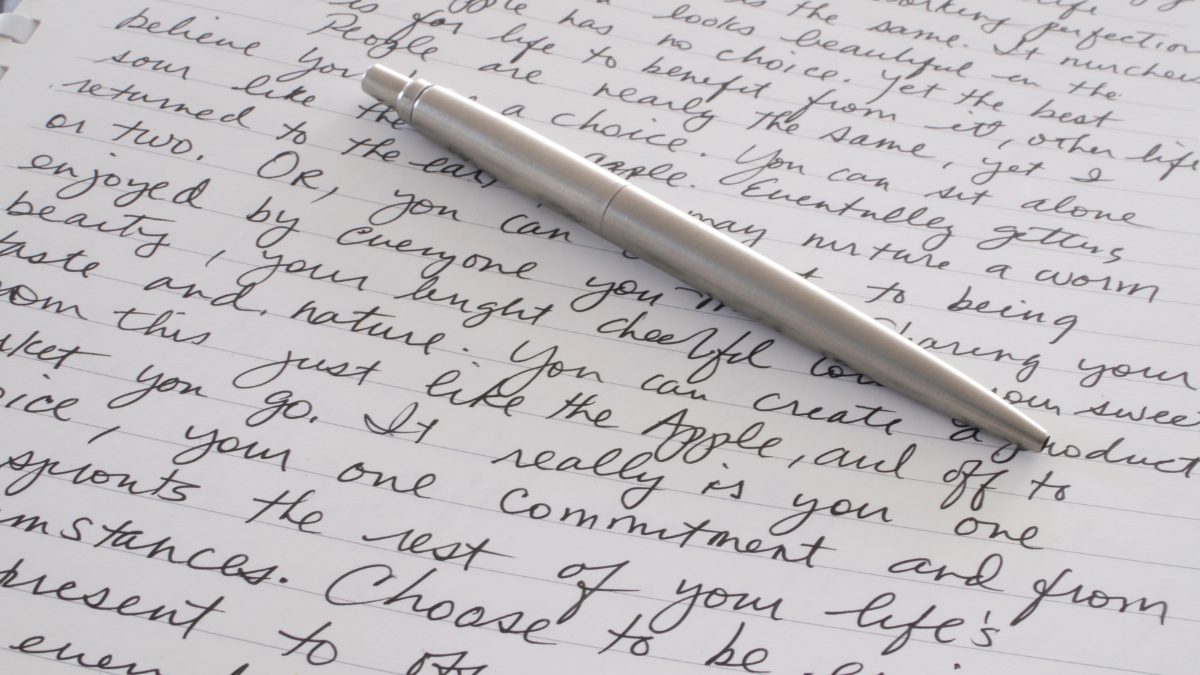 working perfection
is the same. It
looks beautiful in the
has no choice. yet the best
is for life to benefit from it, other life
People are nearly the same, yet I
believe you a choice. You can sit alone
sour like the apple. Eventually getting
returned to the may nurture a worm
or two. OR, you can to being
enjoyed by everyone you Sharing your
beauty, your bright cheerful your sweet
taste and nature. You can create a product
from this just like the Apple, and off to
you go. It really is you one
your one commitment and from
sprouts the rest of your life's
Choose to be
present to
even